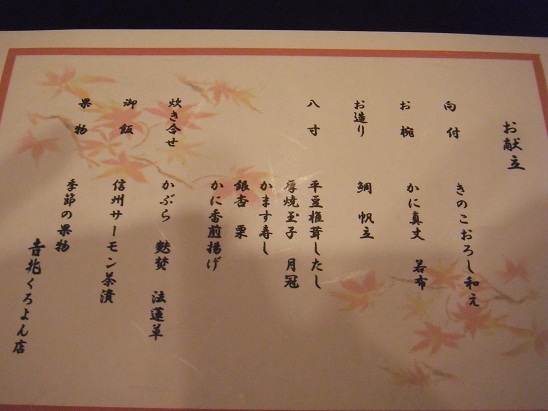 お献立
向付 きのこおろし和え
お椀 かに真丈 若布
お造り 鯛 帆立
八寸 平豆椎茸したし
厚焼玉子 月冠
かます寿し
銀杏 栗
かに香煎揚げ
炊き合せ かぶら 麩 法蓮草
御飯 信州サーモン茶漬
果物 季節の果物
吉兆くろよん店